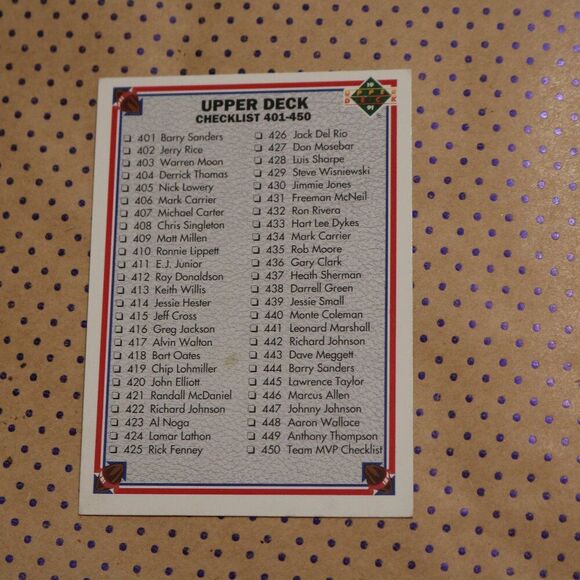 19
UPPER
DECK
91
UPPER DECK
CHECKLIST 401-450
401 Barry Sanders
402 Jerry Rice
403 Warren Moon
404 Derrick Thomas
405 Nick Lowery
406 Mark Carrier
407 Michael Carter
408 Chris Singleton
409 Matt Millen
410 Ronnie Lippett
411 E.J. Junior
412 Ray Donaldson
413 Keith Willis
414 Jessie Hester
415 Jeff Cross
416 Greg Jackson
417 Alvin Walton
418 Bart Oates
419 Chip Lohmiller
420 John Elliott
421 Randall McDaniel
422 Richard Johnson
423 Al Noga
424 Lamar Lathon
425 Rick Fenney
426 Jack Del Rio
427 Don Mosebar
428 Luis Sharpe
429 Steve Wisniewski
430 Jimmie Jones
431 Freeman McNeil
432 Ron Rivera
433 Hart Lee Dykes
434 Mark Carrier
435 Rob Moore
436 Gary Clark
437 Heath Sherman
438 Darrell Green
439 Jessie Small
440 Monte Coleman
441 Leonard Marshall
442 Richard Johnson
443 Dave Meggett
444 Barry Sanders
445 Lawrence Taylor
446 Marcus Allen
447 Johnny Johnson
448 Aaron Wallace
449 Anthony Thompson
450 Team MVP Checklist